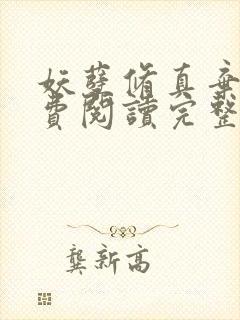 妖孽脩真弃
費閱讀完整
龔新高